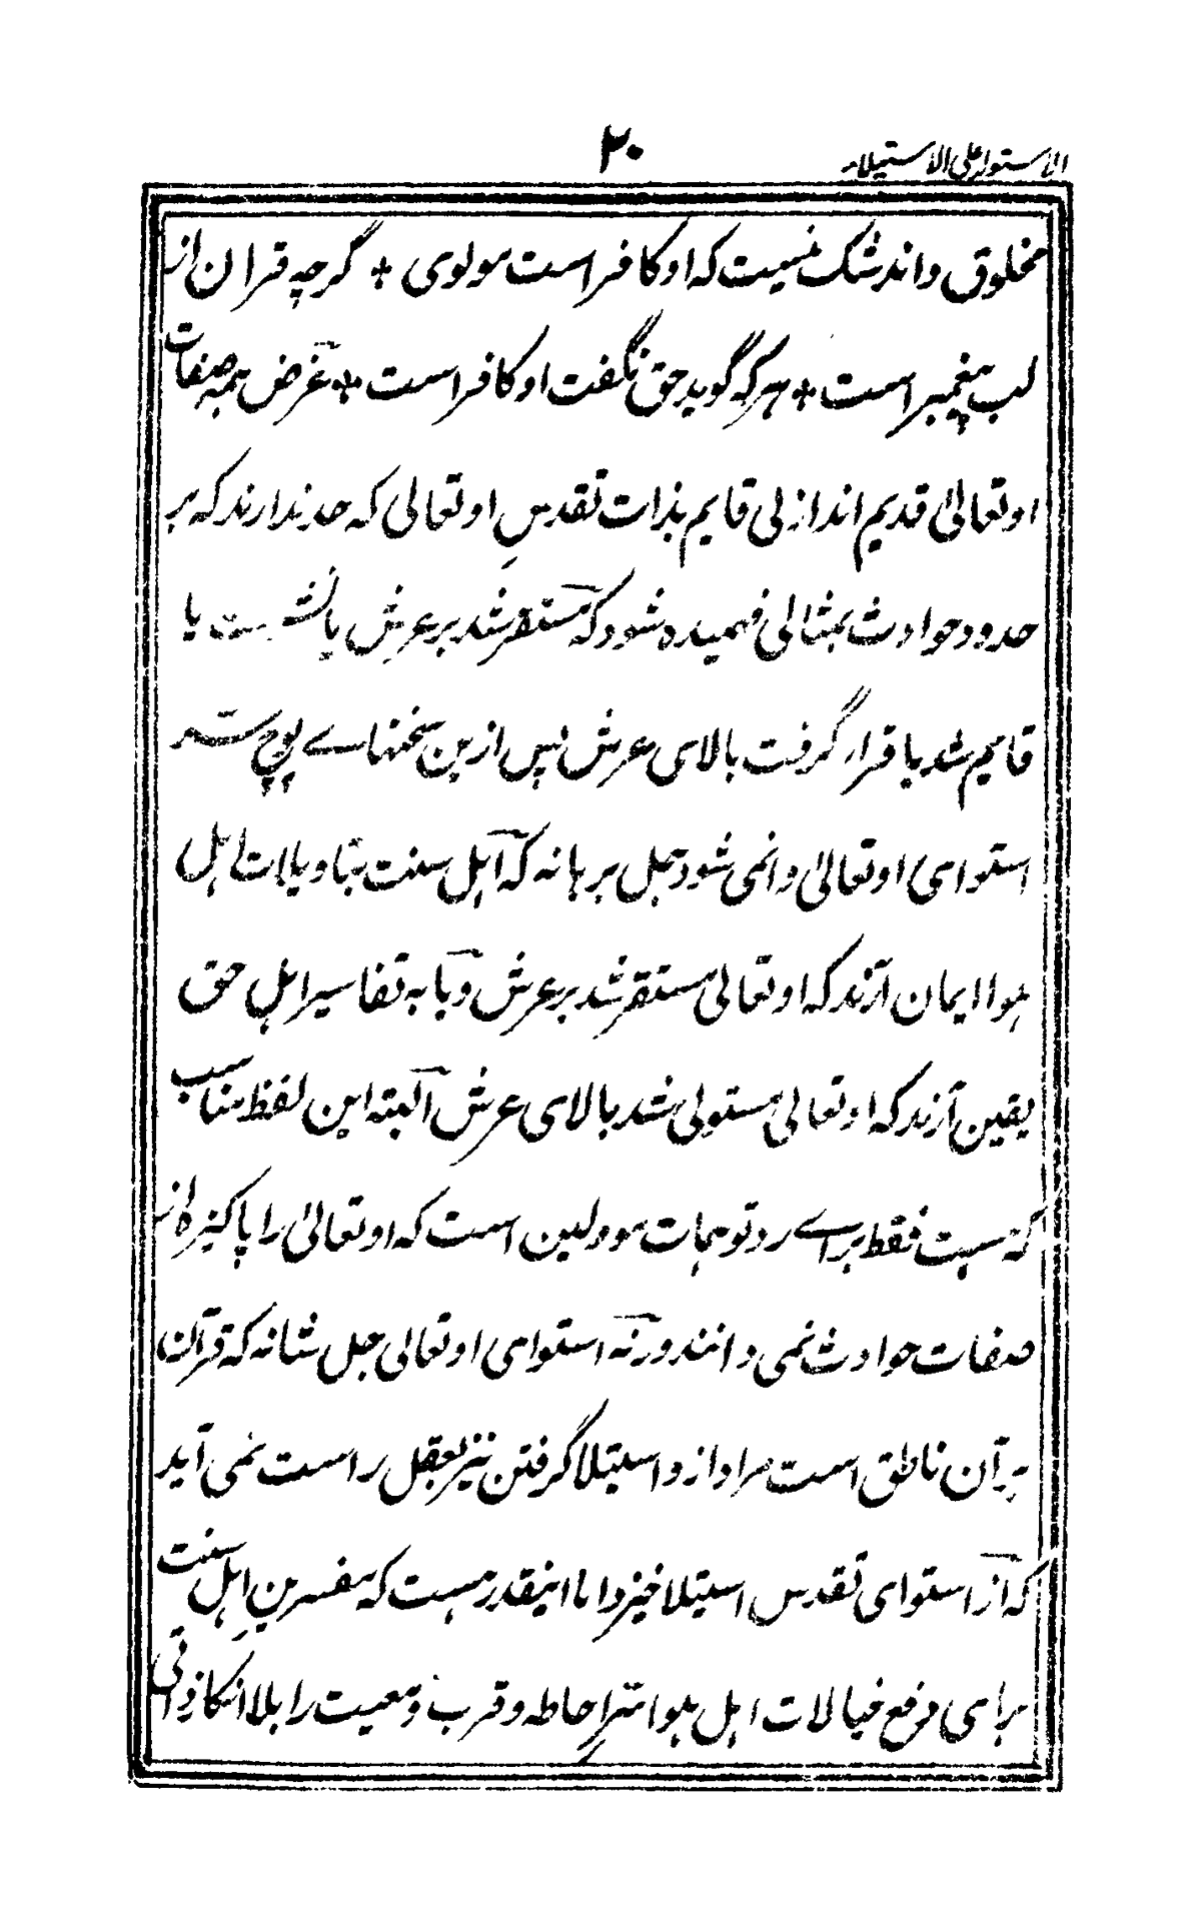 ۲۰
الاستواء علی الاستیلاء
مخلوق داند شک نیست که او کافر است مولوی * گرچه قران از
لب پیغمبر است * هرکه گوید حق نگفت او کافر است * غرض همه صفات
او تعالیٰ قدیم اند ازلی قایم بذات تقدسِ او تعالی که حد ندارند که بر
حدود حوادث بمثالی فهمیده شود که مستقر شد بر عرش یا نشست یا
قایم شد یا قرار گرفت بالای عرش پس ازین سخنهاے پوچ ستر
استوای او تعالیٰ وا نمی شود جل برهانه که اهل سنت بتاویلات اهل
هوا ایمان آرند که او تعالی مستقر شد بر عرش و یا به تفاسیر اهل حق
یقین آرند که او تعالی مستولی شد بالای عرش البته این لفظ مناسب
که هست فقط براے رد توهمات مؤولین است که او تعالیٰ را پاکیزه از
صفات حوادث نمی دانند ورنه استوای او تعالی جل شانه که قرآن
برآن ناطق است مراد ازو استیلا گرفتن نیز بعقل راست نمی آید
که از استوای تقدس استیلا خیزد اما اینقدر هست که مفسرین اهل سنت
برای دفع خیالات اهل هوا احاطه و قرب و معیت را بلا انکار ذاتی